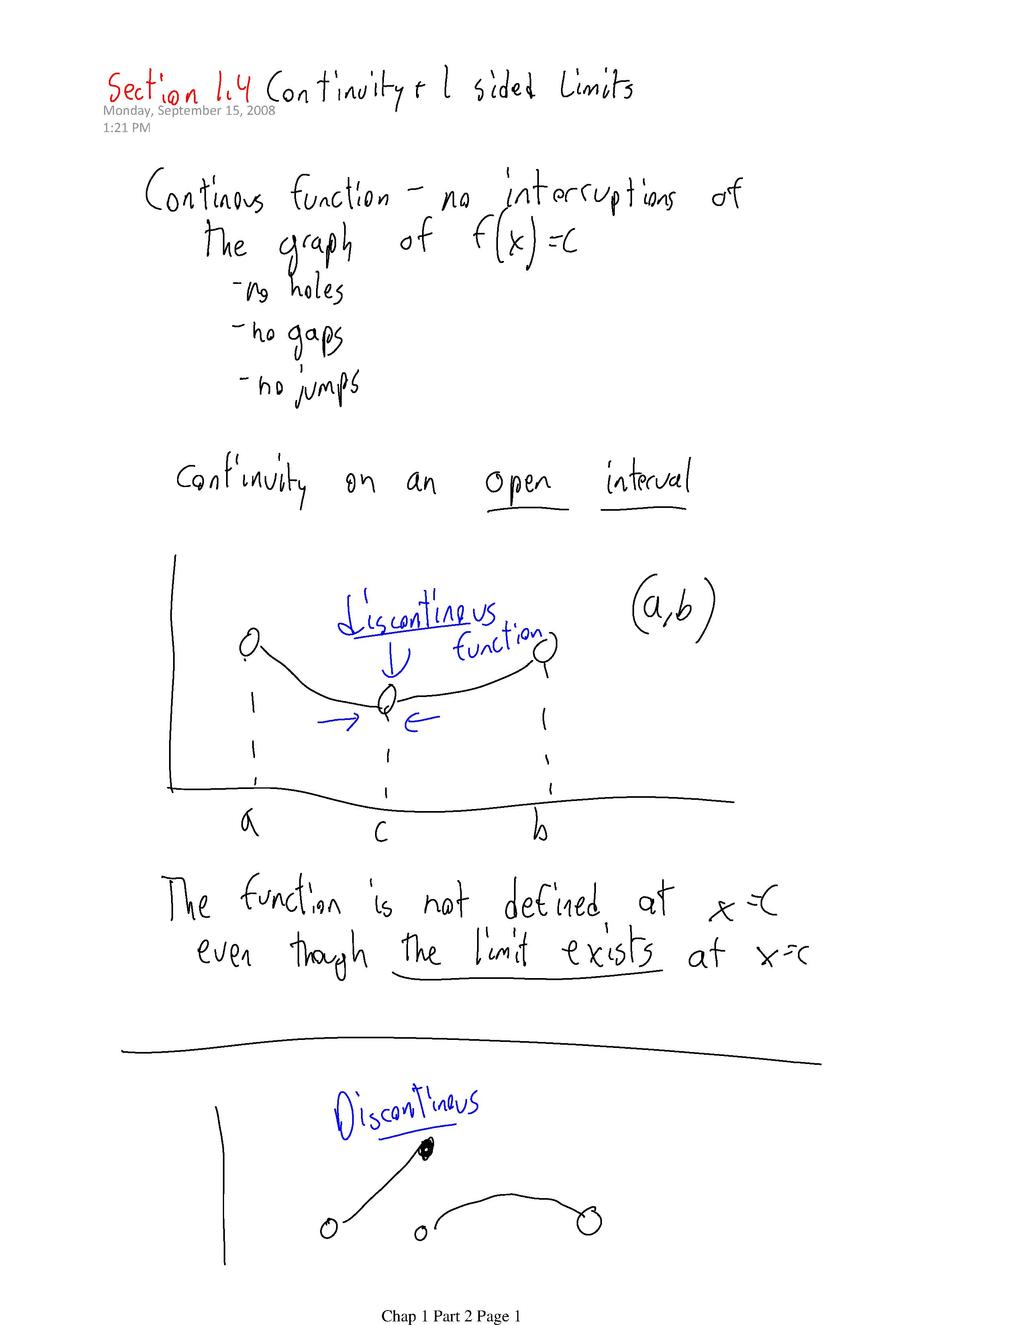 Section 1.4 Continuity + 1 sided Limits
Monday, September 15, 2008
1:21 PM
Continous function - no interruptions of
the graph of f(x)=c
-no holes
-no gaps
-no jumps
Continuity on an open interval
(a,b)
discontinous
function
a c b
The function is not defined at x=c
even though the limit exists at x=c
Discontinous
Chap 1 Part 2 Page 1